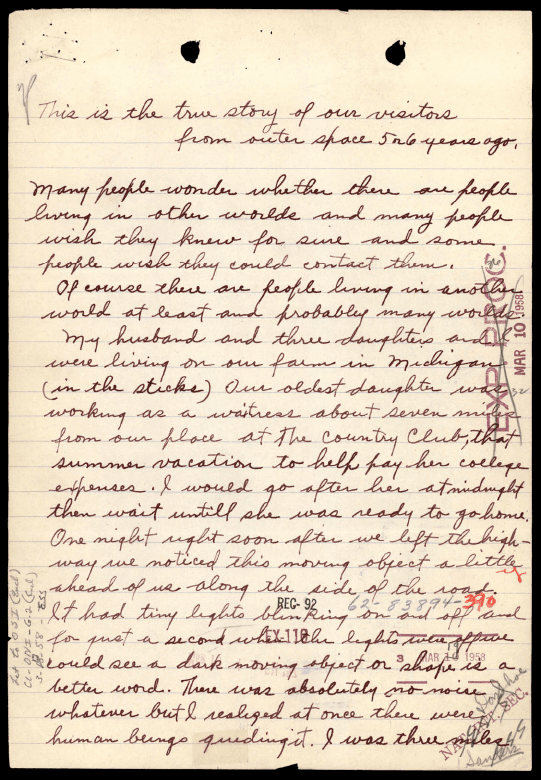 This is the true story of our visitors
from outer space 5 or 6 years ago.
Many people wonder whether there are people
living in other worlds and many people
wish they knew for sure and some
people wish they could contact them.
Of course there are people living in another
world at least and probably many worlds.
My husband and three daughters and I
were living on our farm in Michigan
(in the sticks) Our oldest daughter was
working as a waitress about seven miles
from our place at the Country Club, that
summer vacation to help pay her college
expenses. I would go after her at midnight
then wait untill she was ready to go home.
One night right soon after we left the high-
way we noticed this moving object a little
ahead of us along the side of the road.
It had tiny lights blinking on and off and
for just a second when the lights were off we
could see a dark moving object or shape is a
better word. There was absolutely no noise
whatever but I realized at once there were
human beings guiding it. I was three miles
EXP. PROC.
MAR 10 1958
REC-92
62-83894-390
EX 110
3 MAR 10 1958
NAT. INT. SEC.